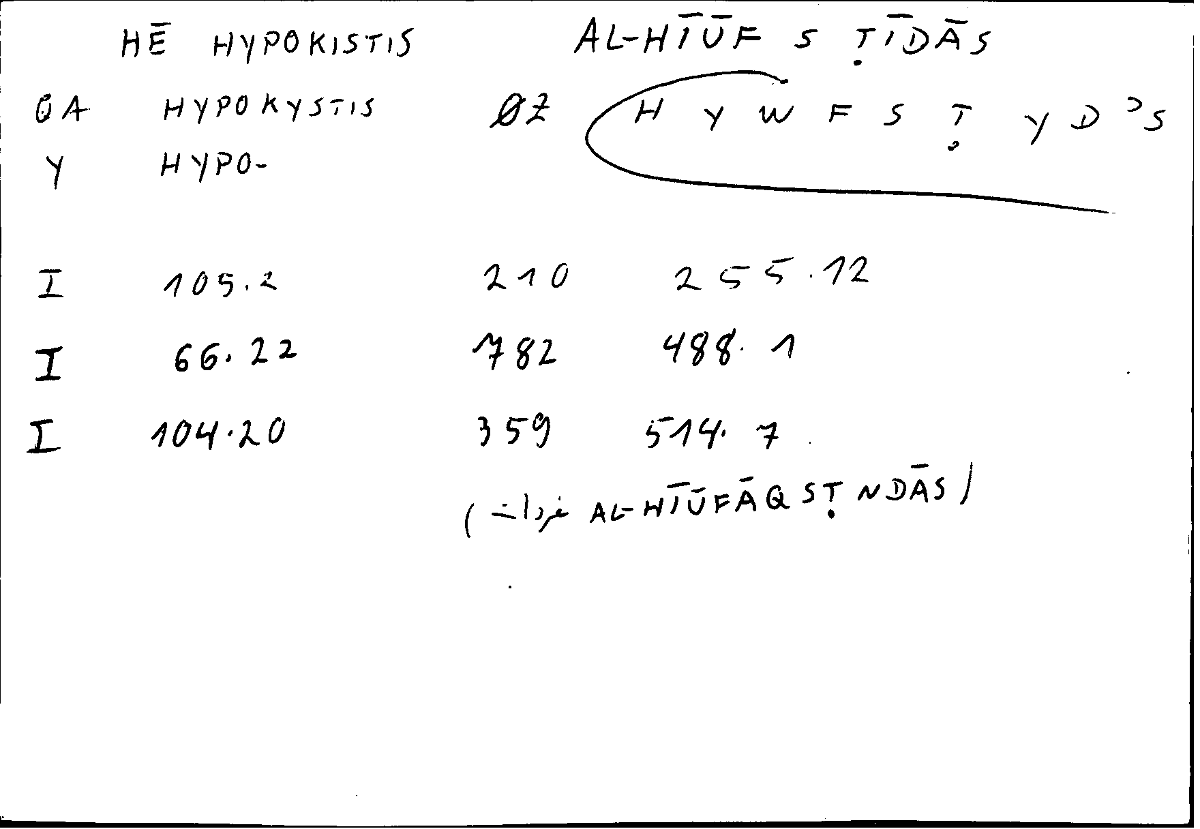 HĒ HYPOKISTIS AL-HĪŪF S ṬĪDĀS
GA HYPOKYSTIS ØZ H Y W F S Ṭ Y D ʾS
Y HYPO-
I 105.2 210 255.12
I 66.22 782 488.1
I 104.20 359 514.7
( AL-HĪŪFĀQ SṬ NDĀS)